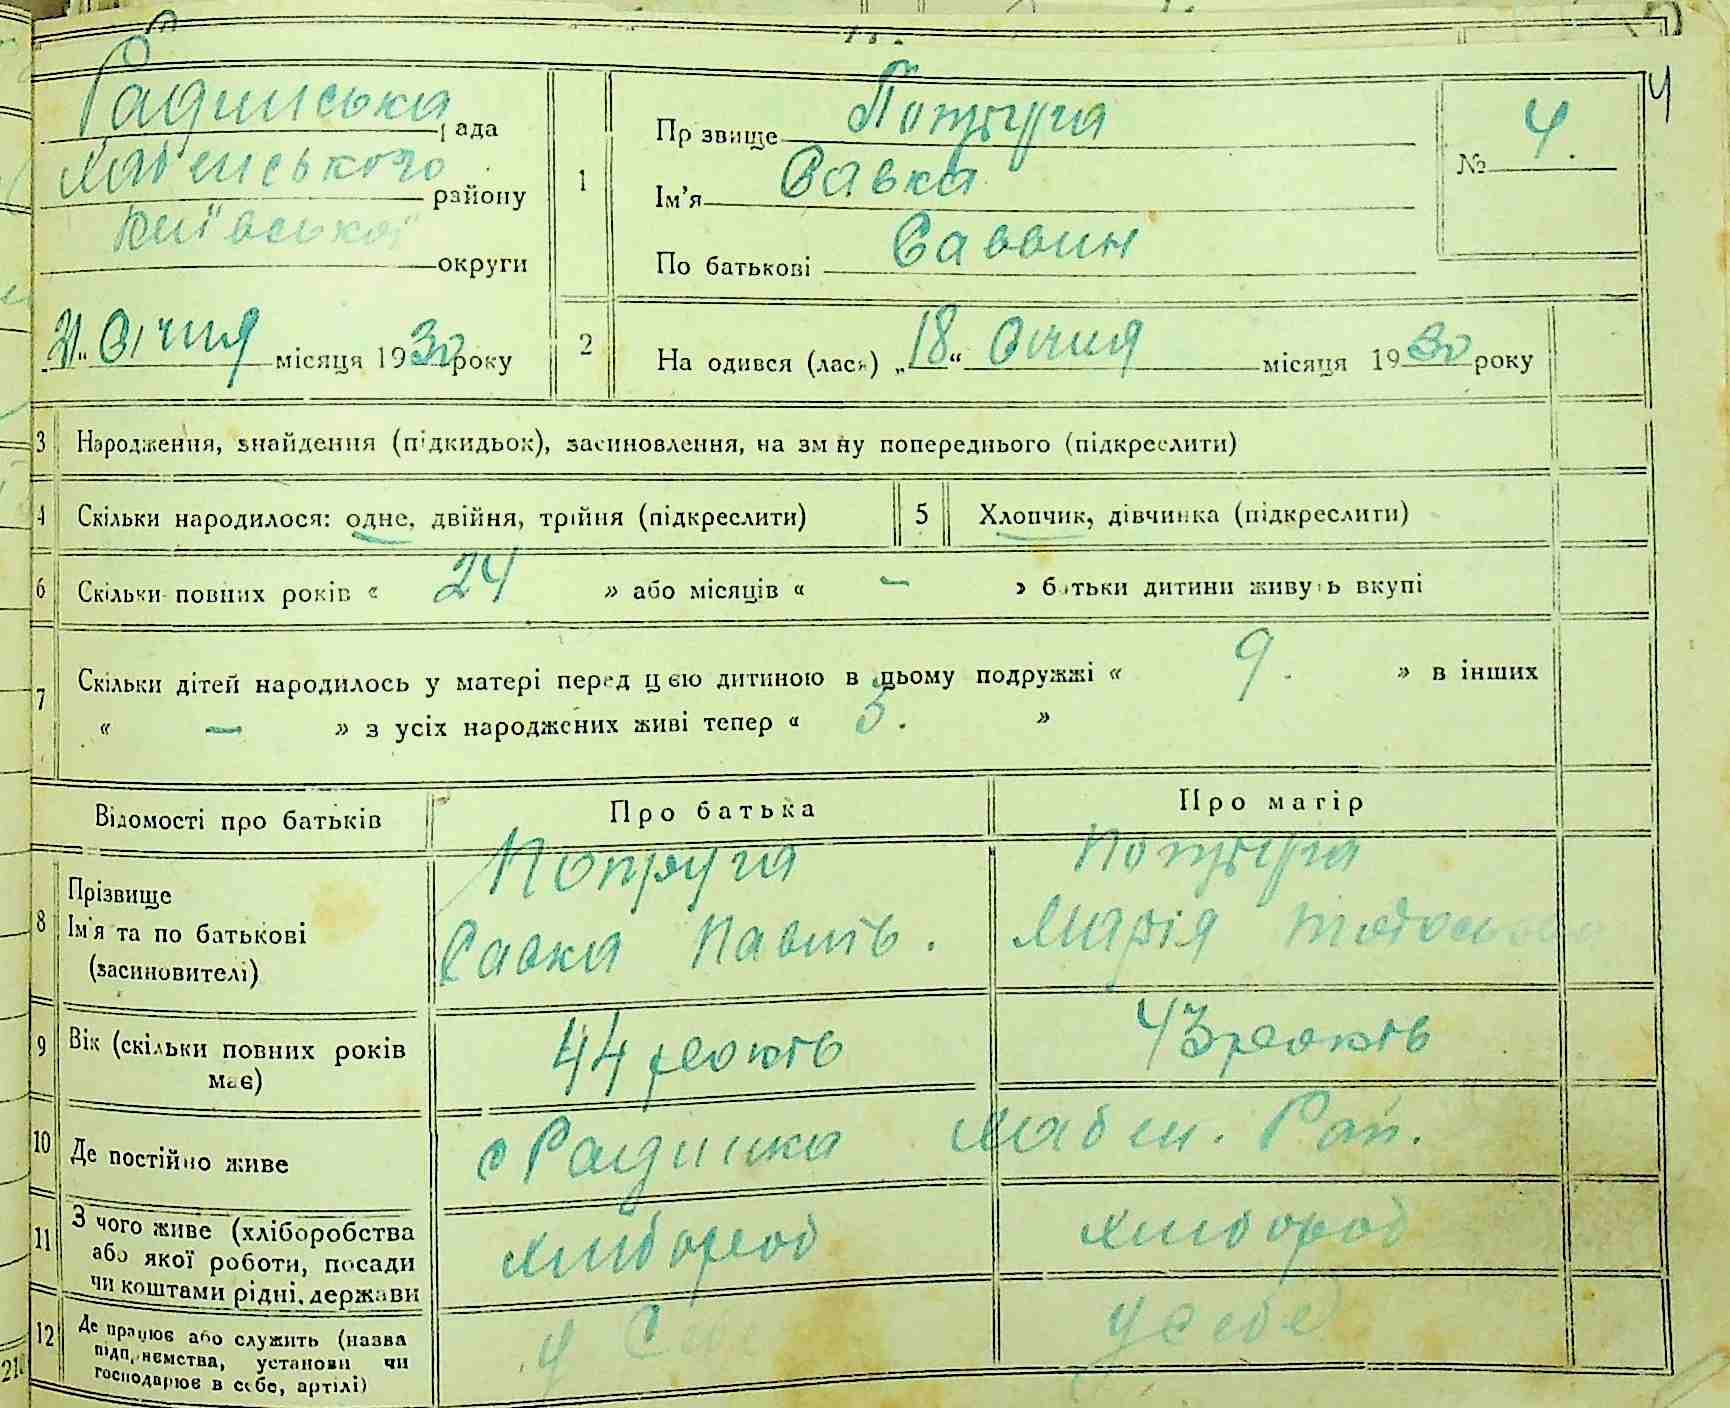 4
Радинська рада
Хабенського району
Київської округи
21" Січня місяця 1930 року
1
Прізвище Попруга
Ім'я Савка
По батькові Саввин
№ 4.
2
На одився (лася) „18" Січня місяця 1930 року
3 Народження, знайдення (підкидьок), засиновлення, на зміну попереднього (підкреслити)
4 Скільки народилося: одне, двійня, трійня (підкреслити)
5 Хлопчик, дівчинка (підкреслити)
6 Скільки повних років « 24 » або місяців « – » батьки дитини живуть вкупі
7 Скільки дітей народилось у матері перед цією дитиною в цьому подружжі « 9. » в інших
« – » з усіх народжених живі тепер « 5. »
Відомості про батьків
Про батька
Про матір
8
Прізвище
Ім'я та по батькові
(засиновителі)
Попруга
Савка Павлів.
Попруга
Марія
9 Вік (скільки повних років
має)
44 років
43 років
10 Де постійно живе
с Радинка Хабен. Рай.
11 З чого живе (хліборобства
або якої роботи, посади
чи коштами рідні, держави
хлібороб
хлібороб
12 Де працює або служить (назва
підприємства, установи чи
господарює в себе, артілі)
у себе
у себе